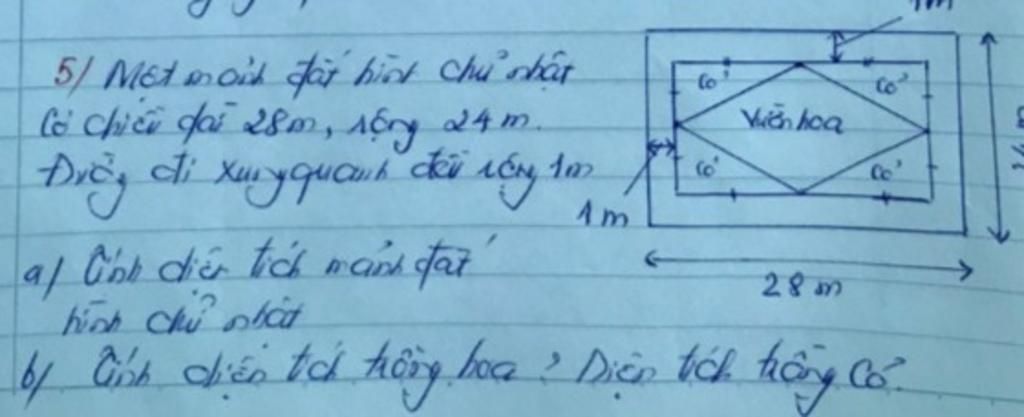 5/ Một mảnh đất hình chữ nhật
Có chiều dài 28m, rộng 24m.
Đường đi xung quanh đều rộng 1m
a/ Tính diện tích mảnh đất
hình chữ nhật
b/ Tính diện tích trồng hoa? Diện tích trồng cỏ.
1m
cỏ
cỏ
Vườn hoa
cỏ
cỏ
1m
28m